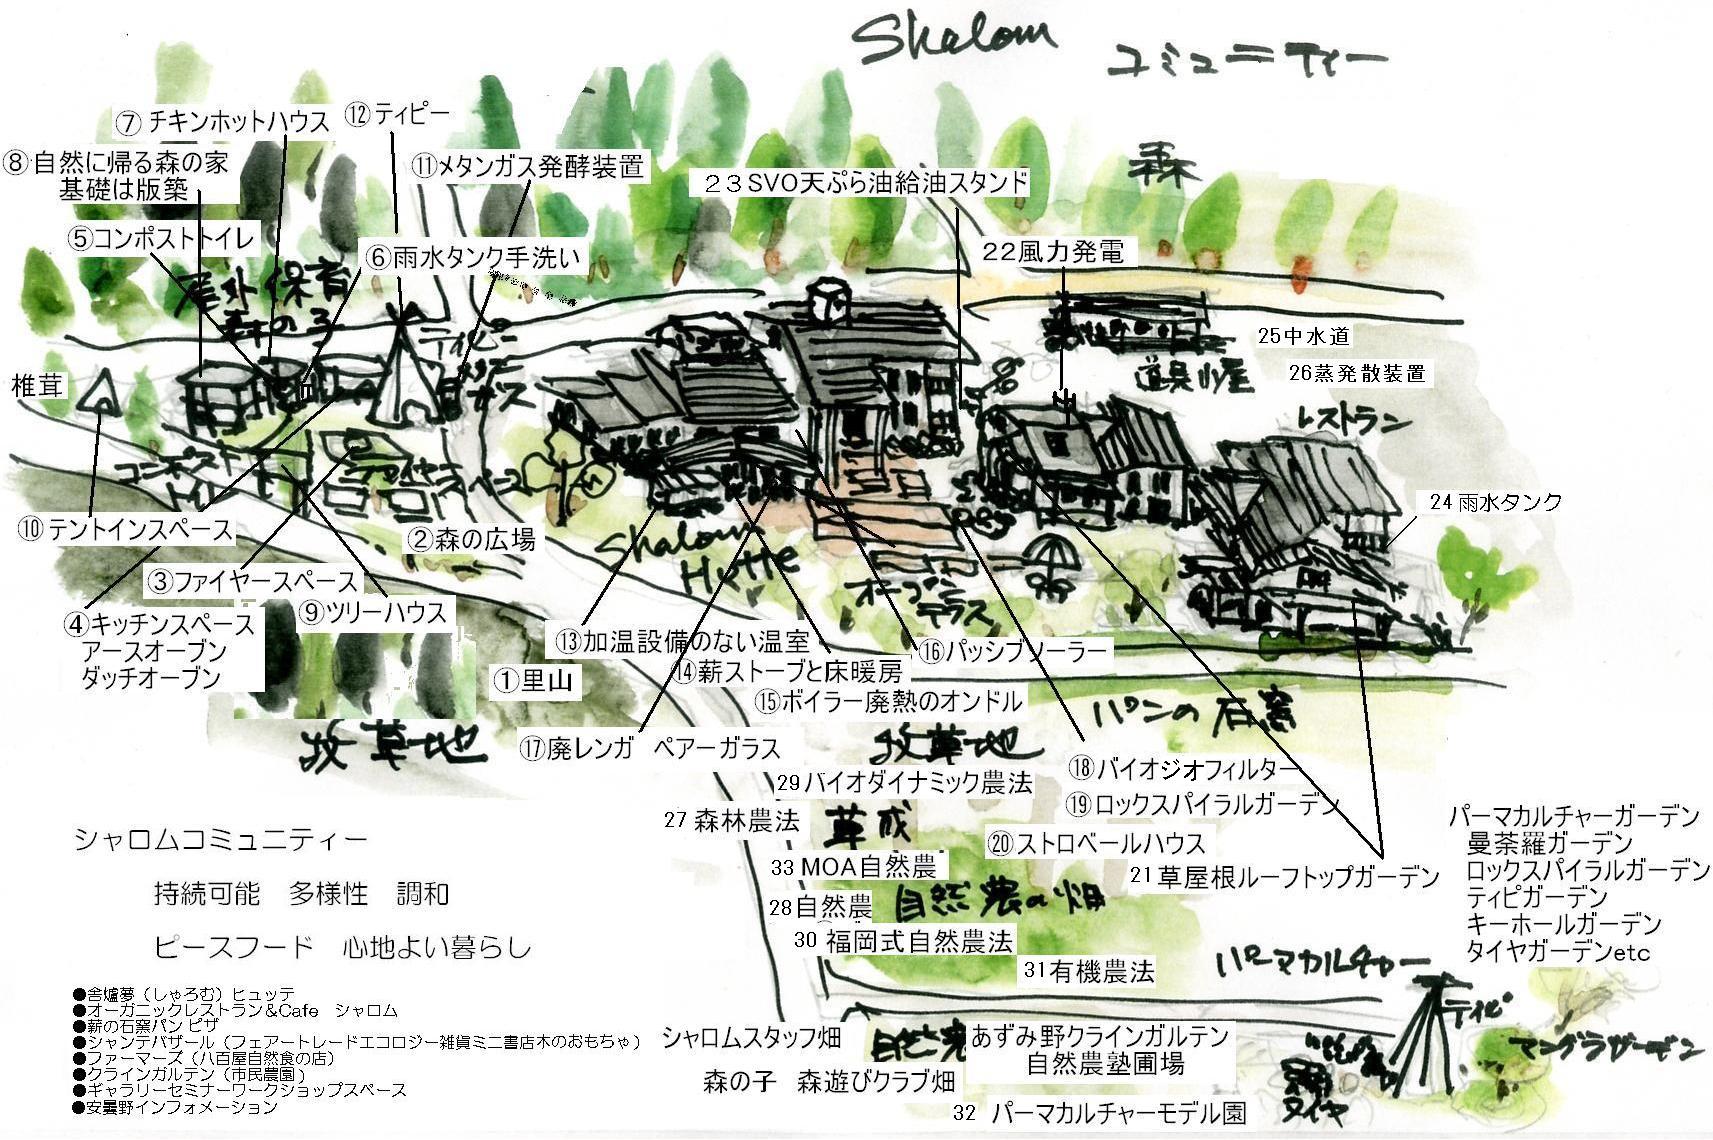 Shalom
コミュニティー
⑦ チキンホットハウス
⑫ティピー
⑧自然に帰る森の家
基礎は版築
⑪メタンガス発酵装置
森
23SVO天ぷら油給油スタンド
⑤コンポストトイレ
⑥雨水タンク手洗い
22風力発電
屋外保育
森の子
ティピー
メタンガス
25中水道
道具小屋
26蒸発散装置
椎茸
レストラン
コンポスト
トイレ
ファイヤースペース
⑩テントインスペース
②森の広場
24雨水タンク
Shalom
Hütte
③ファイヤースペース
オープン
テラス
⑨ツリーハウス
④キッチンスペース
アースオーブン
ダッチオーブン
⑬加温設備のない温室
⑯パッシブソーラー
⑭薪ストーブと床暖房
①里山
⑮ボイラー廃熱のオンドル
パンの石窯
牧草地
⑰廃レンガ ペアーガラス
牧草地
⑱バイオジオフィルター
29バイオダイナミック農法
⑲ロックスパイラルガーデン
27森林農法
⑳ストロベールハウス
33MOA自然農
21草屋根ルーフトップガーデン
28自然農
自然農の畑
30福岡式自然農法
31有機農法
パーマカルチャーガーデン
曼荼羅ガーデン
ロックスパイラルガーデン
ティピガーデン
キーホールガーデン
タイヤガーデンetc
シャロムコミュニティー
持続可能 多様性 調和
ピースフード 心地よい暮らし
パーマカルチャー
ティピ
マンダラガーデン
タイヤ
●舎爐夢（しゃろむ）ヒュッテ
●オーガニックレストラン&Cafe シャロム
●薪の石窯パン ピザ
●シャンテバザール（フェアートレードエコロジー雑貨ミニ書店木のおもちゃ）
●ファーマーズ（八百屋自然食の店）
●クラインガルテン（市民農園）
●ギャラリーセミナーワークショップスペース
●安曇野インフォメーション
シャロムスタッフ畑
あずみ野クラインガルテン
自然農塾圃場
森の子 森遊びクラブ畑
32 パーマカルチャーモデル園